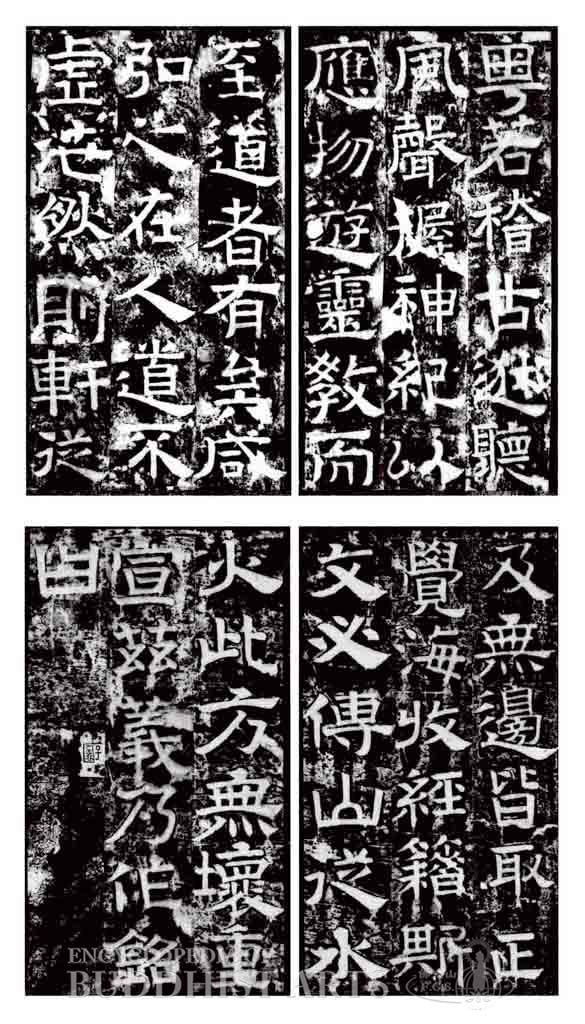 粵若稽古逖聽
風聲握神紀以
應物遊靈教而
至道者有矣咸
弘之在人道不
虛然則軒從
及無邊皆取正
覺海收經籍斯
文必傳山從水
火此方無壞重
宣茲義乃作銘
曰
ENCYCLOPEDIA
BUDDHIST ARTS
F.G.S.